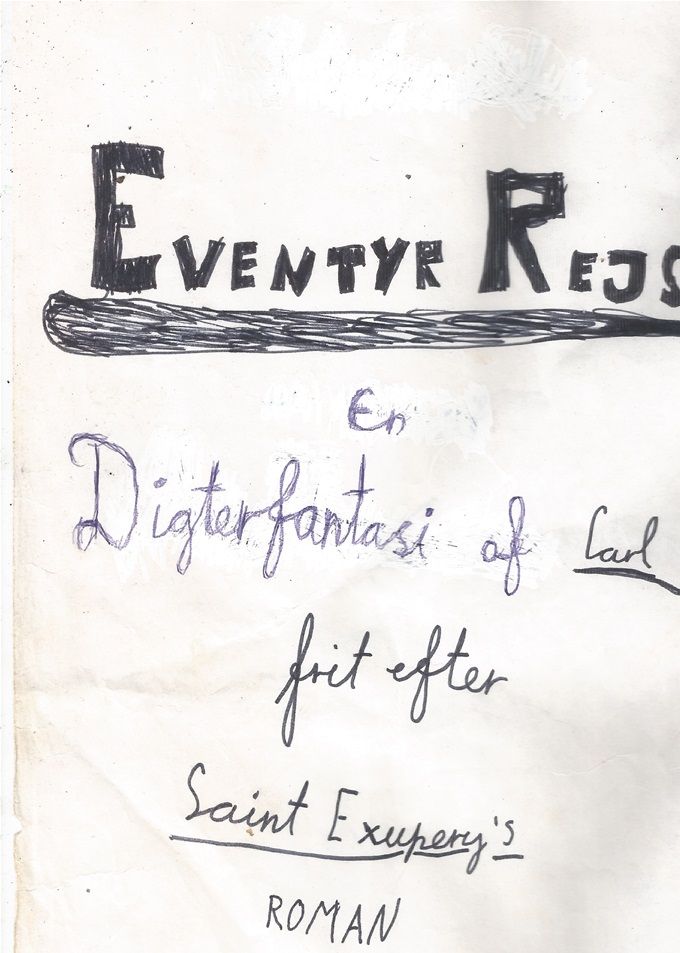 EVENTYR REJS
En
Digterfantasi af Carl
frit efter
Saint Exupery's
ROMAN